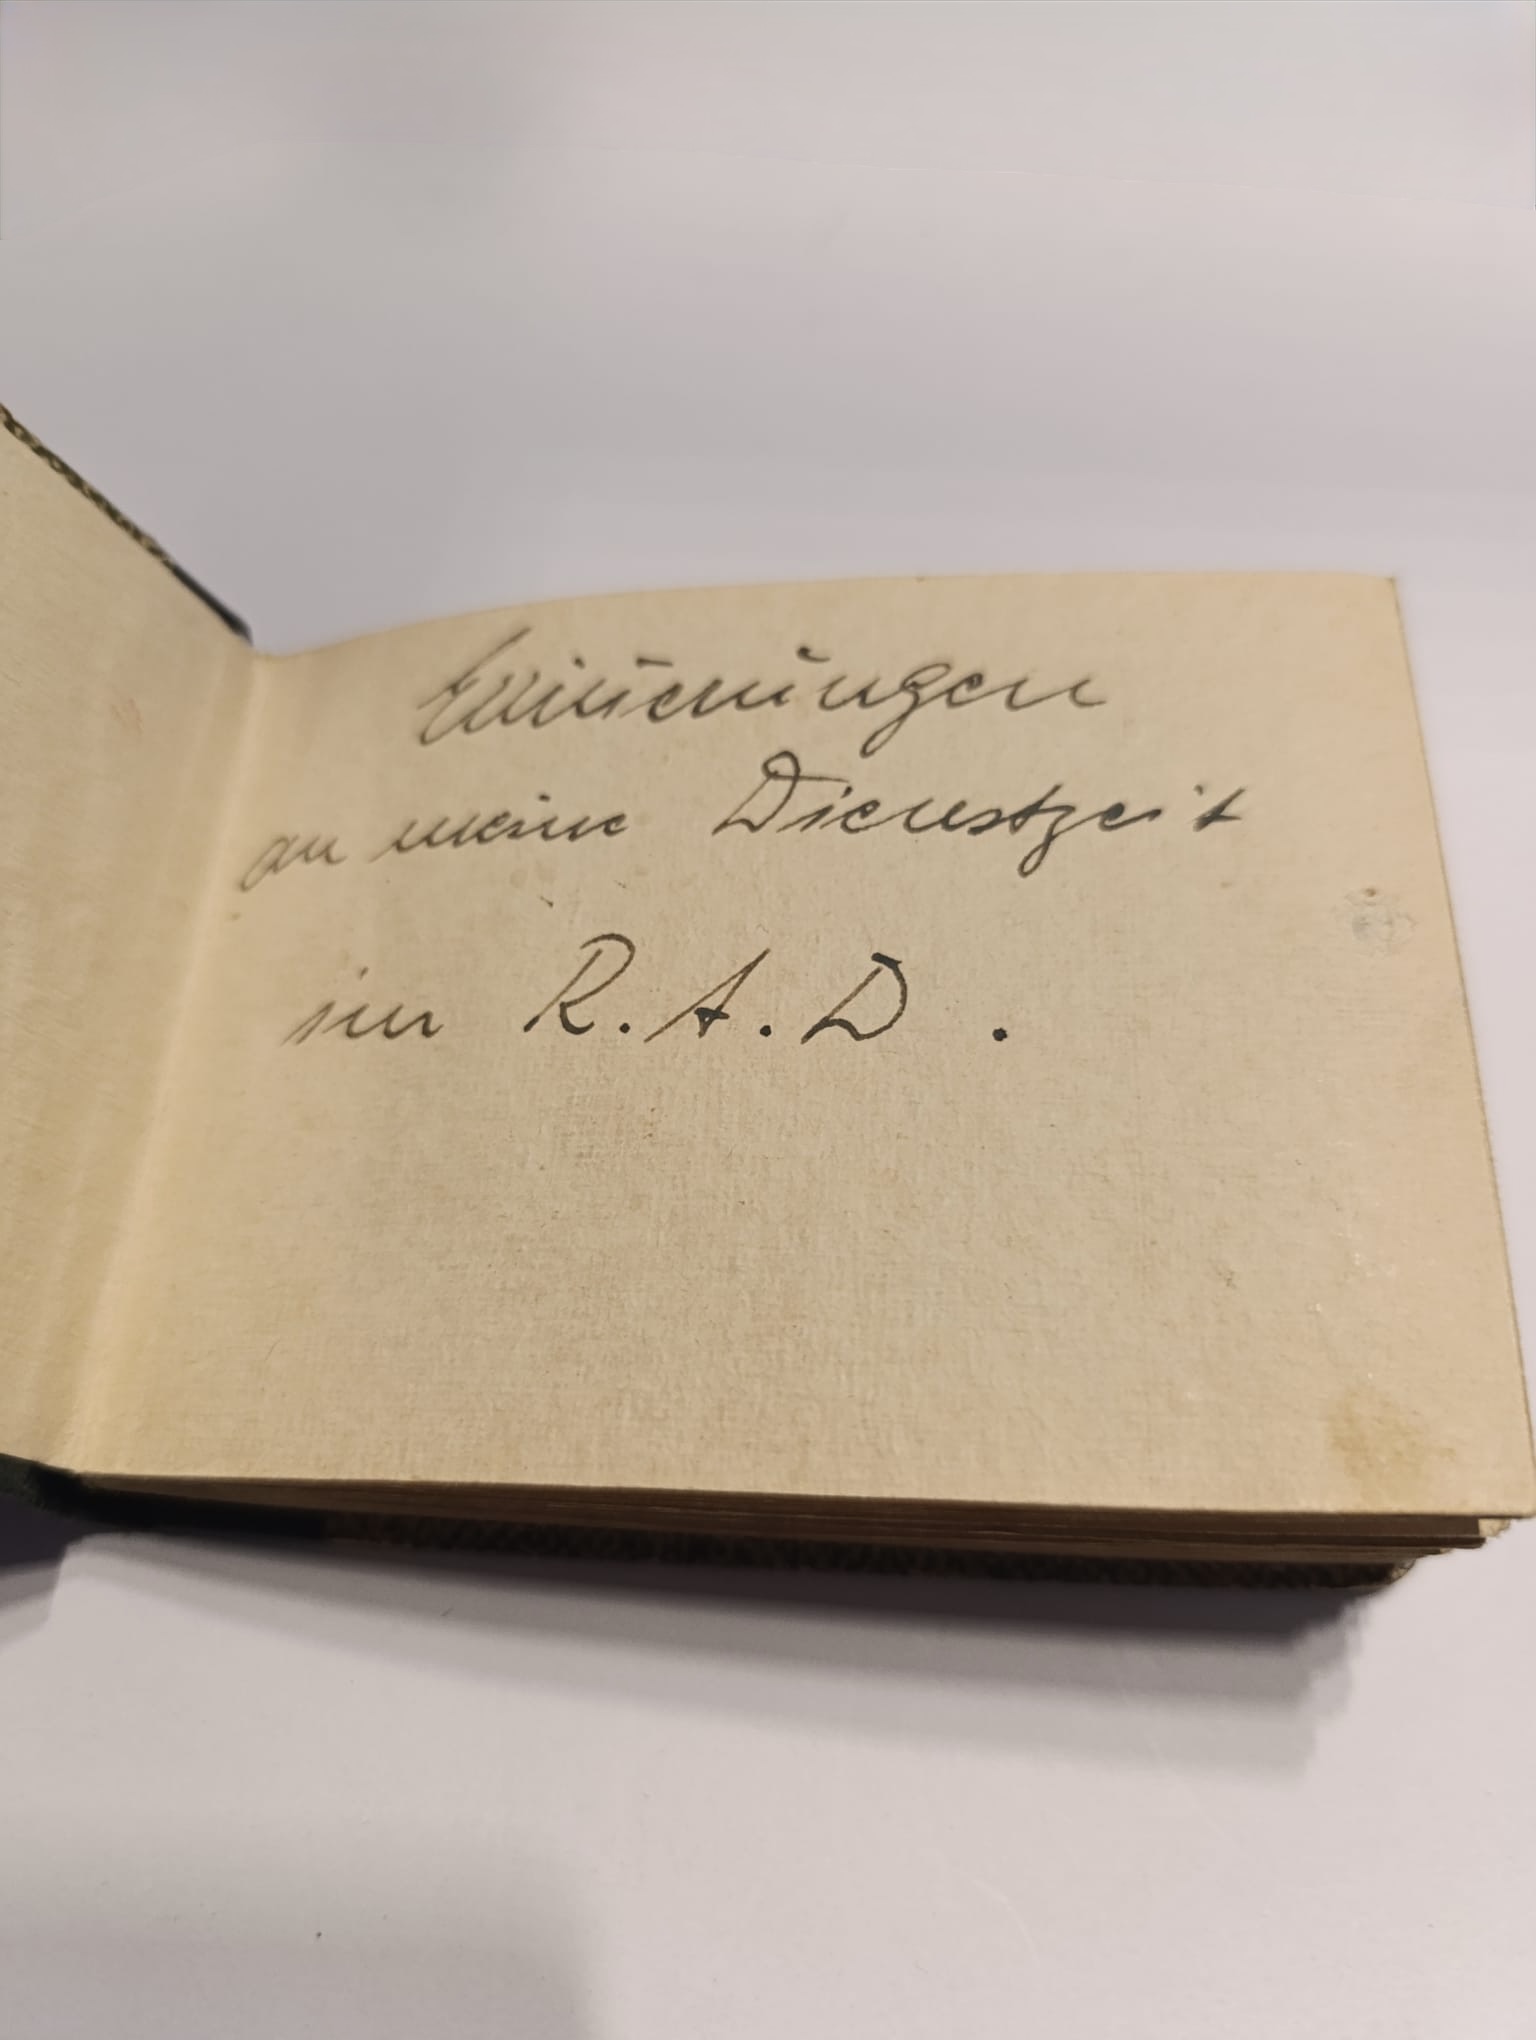 Erinnerungen
an meine Dienstzeit
im R.A.D.